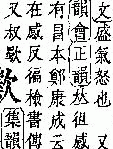 文盛氣怒也　又
韻會正韻𠀤徂感
有昌本鄭康成云
在感反徧檢書傳
又叔歜
歜集韻